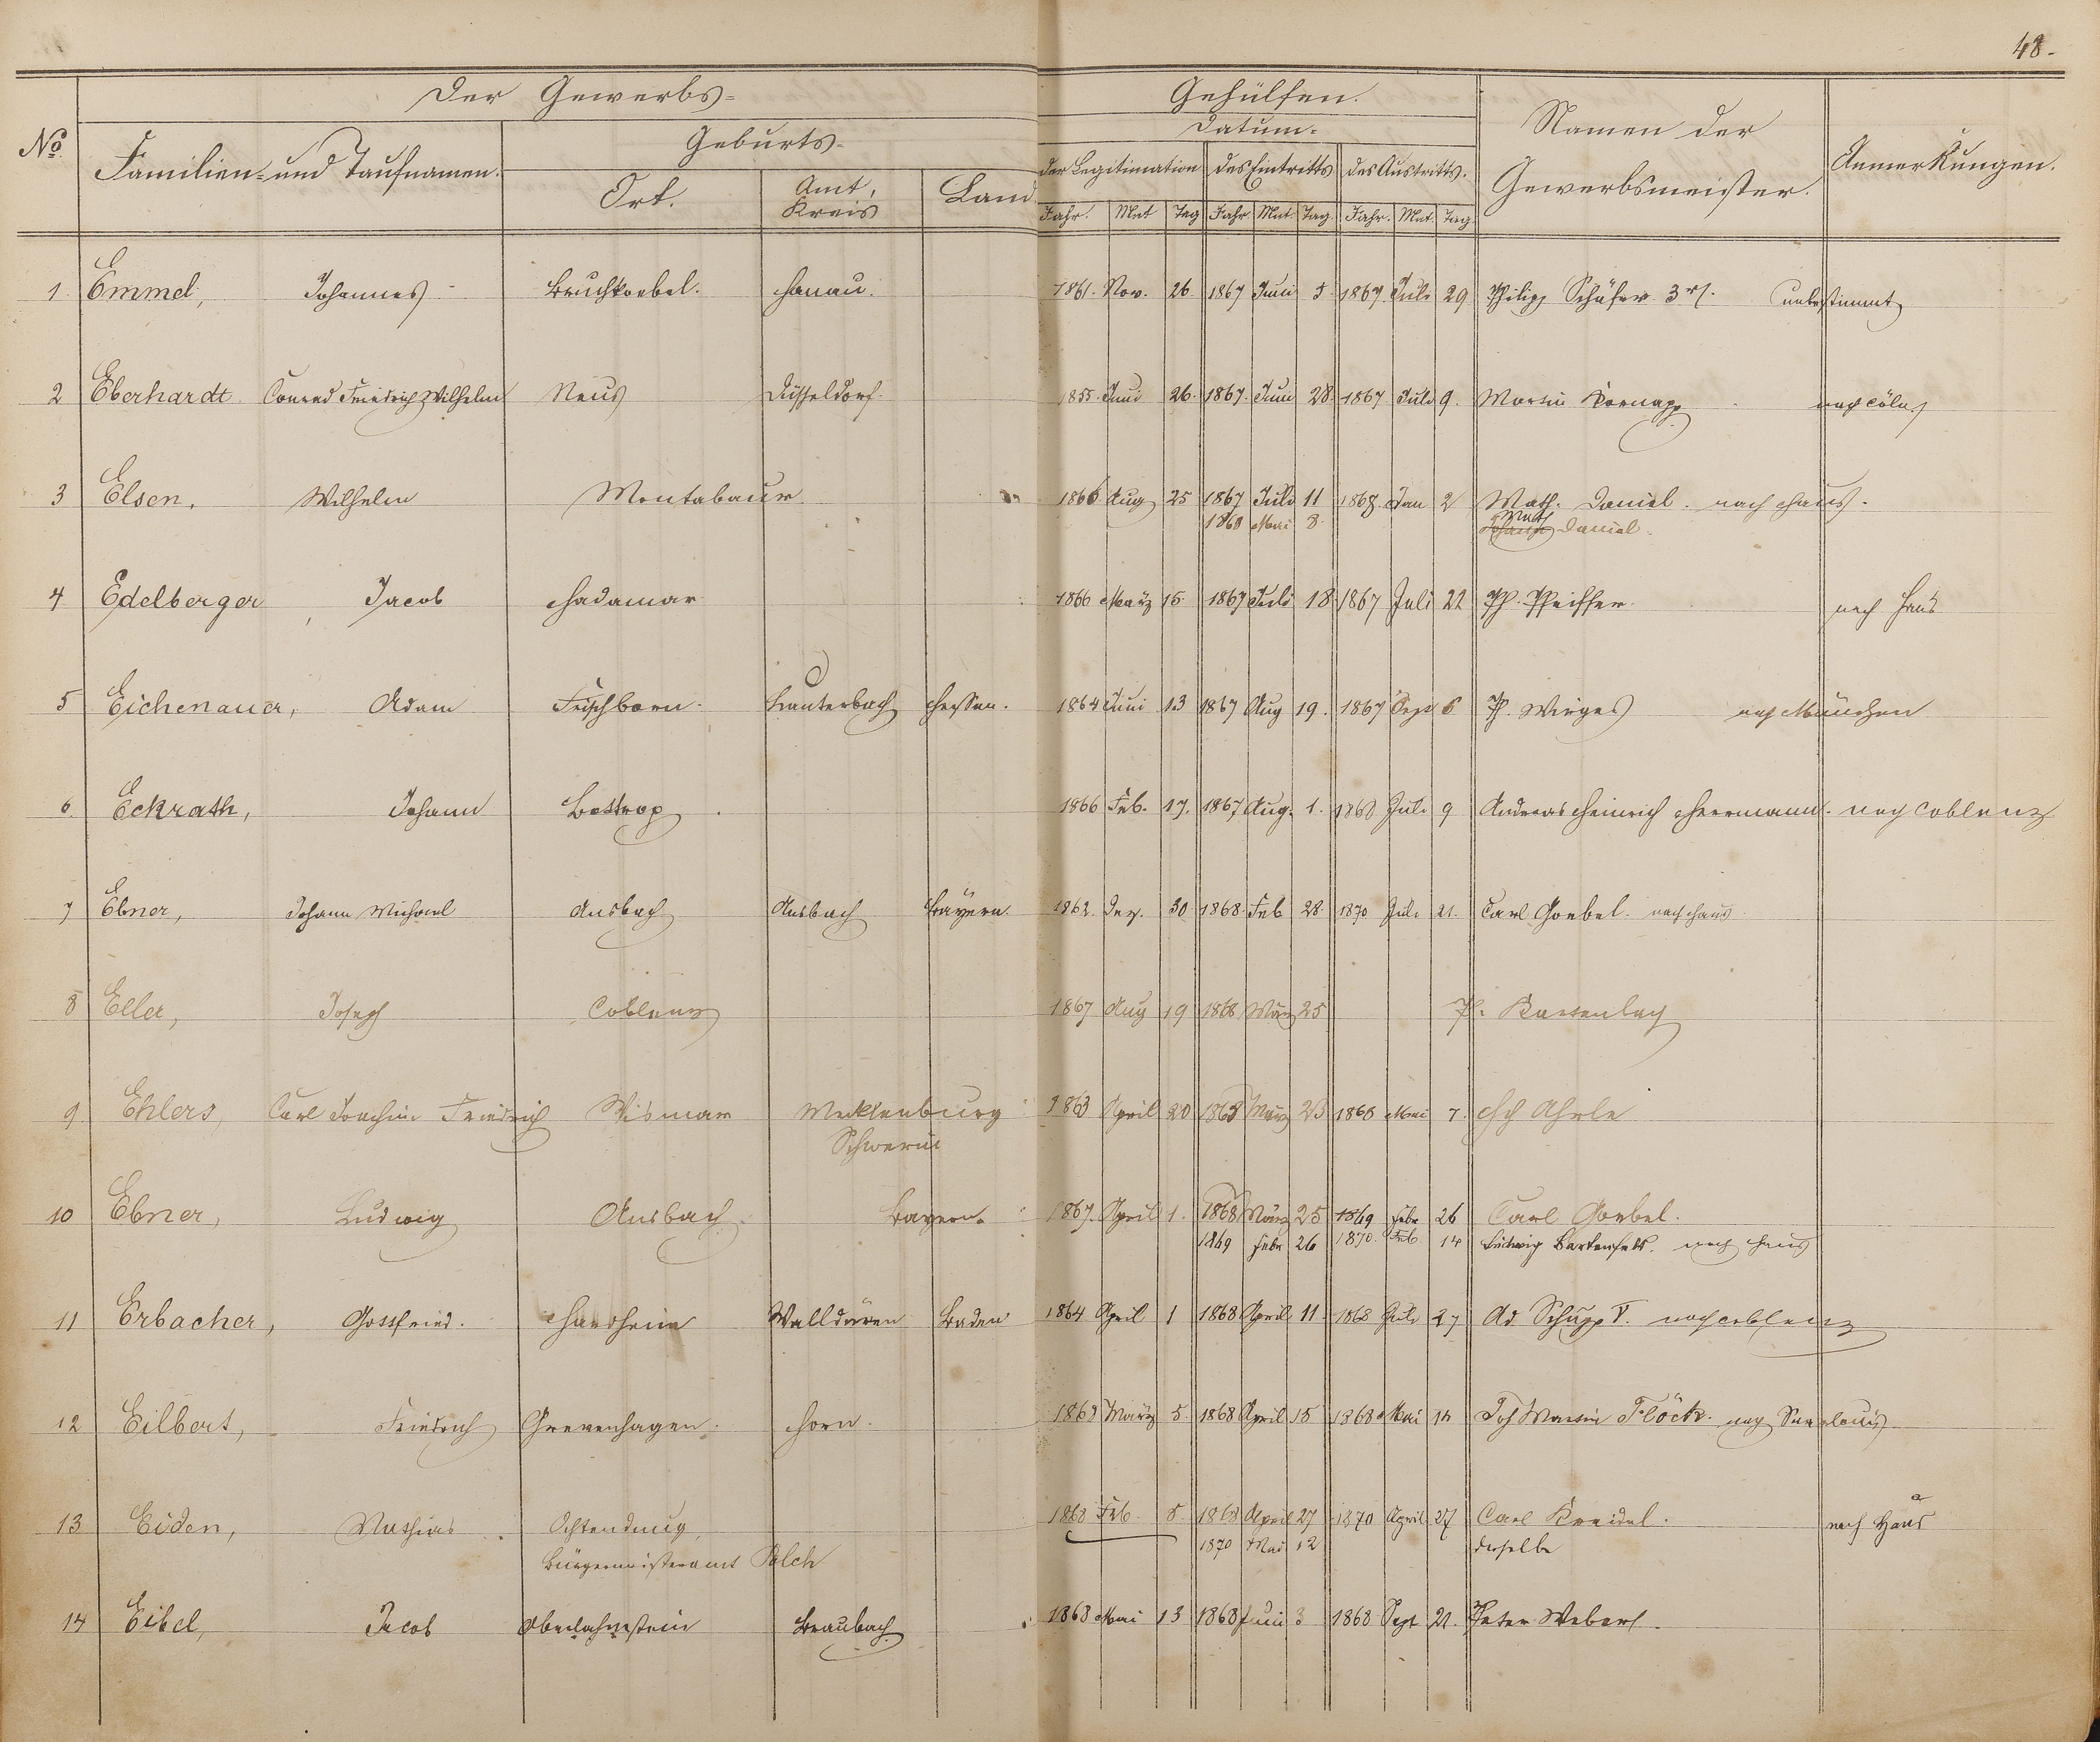 48.
Der Gewerbs= Gehülfen.
No. Familien= und Taufnamen. Geburts- Datum= Namen der Gewerbsmeister. Anmerkungen.
Ort. Amt, Kreis Land der Legitimation des Eintritts des Austritts.
Jahr. Mnt Tag Jahr Mnt. Tag. Jahr. Mnt. Tag.
1. Emmel, Johannes Bruchkoebel. Hanau. 1861. Nov. 26 1867 Juni 5 1867 Juli 29 Philipp Schäfer 3r. unbestimmt
2 Eberhardt Conrad Friedrich Wilhelm Neus Düsseldorf. 1855. Juni 26. 1867. Juni 28. 1867 Juli 9. Martin nach Cöln
3 Elsen, Wilhelm Montabaur 1866 Aug 25 1867 Juli 11 1868. Jan 2 Math. Daniel. nach Haus.
1868 Mai 8. Math Daniel.
4 Edelberger, Jacob Hadamar 1866 März 15. 1867 Juli 18 1867 Juli 22 Ph. Pfeiffer. nach Haus
5 Eichenauer, Adam Frischborn. Lauterbach Hessen. 1864 Juni 13 1867 Aug 19. 1867 Sept 6 P. Wirges nach München
6. Eckrath, Johann Bottrop. 1866 Feb. 17. 1867 Aug. 1. 1868 Juli 9 Andreas Heinrich Herrmann. nach Coblenz
7 Ebner, Johann Michael Ansbach Ansbach Bayern. 1862. Dez. 30 1868. Feb 28. 1870 Juli 21. Carl Goebel. nach Haus
8 Eller, Joseph Coblenz 1867 Aug 19 1868 März 25
9. Ehlers, Carl Joachim Friedrich Wismar Mecklenburg 1863 April 20 1868 März 23 1868 Mai 7. Ahrle
Schwerin
10 Ebner, Ludwig Ansbach Bayern. 1867. April 1. 1868 März 25 1869 Febr 26 Carl Goebel.
1869 Febr 26 1870. Feb 14 Ludwig nach Haus
11 Erbacher, Gottfried. Hardheim Walldüren Baden 1864 April 1 1868 April 11 1868 Juli 27 Ad Schupp V. nach Coblenz
12 Eilbert, Friedrich Grevenhagen. Horn. 1863 März 5. 1868 April 15 1868 Mai 14 Joh Martin Flöck. nach Saarlouis
13 Eiden, Mathias Ochtendung, 1868 Feb. 8. 1868 April 27 1870 April 27 Carl Kreidel. nach Haus
Bürgermeisteramt Polch 1870 Mai 12 derselbe
14 Eibel, Jacob Oberlahnstein Braubach 1868 Mai 13 1868 Juni 3 1868 Sept 21. Peter Weber.